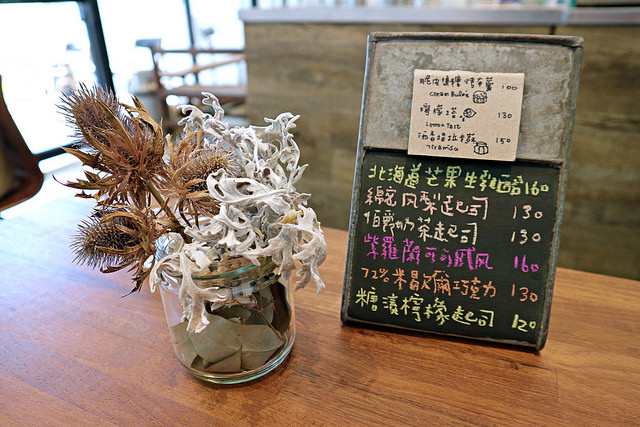 脆皮焦糖烤布蕾 100
檸檬塔 130
Lemon Tart
酒香提拉米蘇 150
Tiramisu
北海道芒果生乳酪 160
綿密风梨起司 130
伯爵奶茶起司 130
紫羅蘭可可戚风 160
72% 米晶爾巧克力 130
糖漬檸檬起司 120